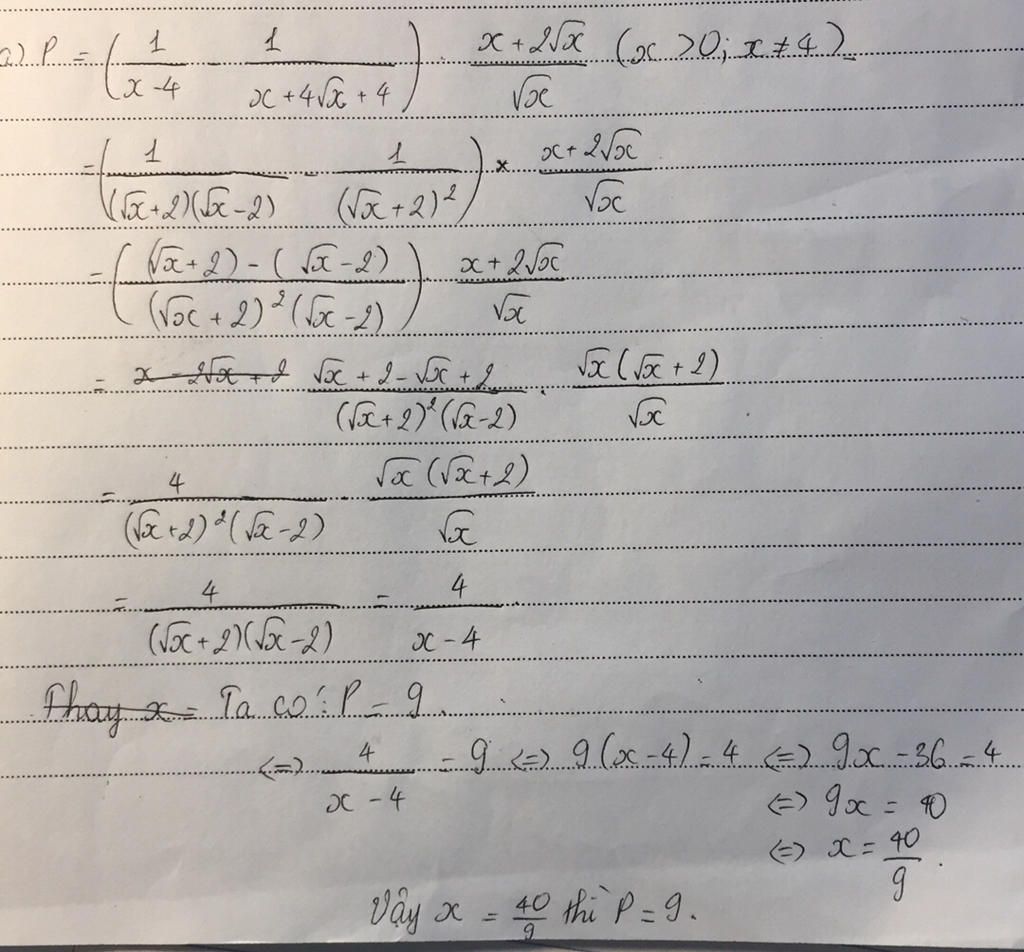 a) P = ( 1/(x-4) - 1/(x+4√x+4) ) . (x+2√x)/√x (x >0; x ≠ 4)
= ( 1/((√x+2)(√x-2)) - 1/(√x+2)² ) × (x+2√x)/√x
= ( ((√x+2)-(√x-2))/((√x+2)²(√x-2)) ) . (x+2√x)/√x
= x - 2√x + 2 (√x+2-√x+2)/((√x+2)²(√x-2)) . √x(√x+2)/√x
= 4/((√x+2)²(√x-2)) . √x(√x+2)/√x
= 4/((√x+2)(√x-2)) = 4/(x-4)
Thay x = Ta có: P = 9.
<=> 4/(x-4) = 9 <=> 9(x-4) = 4 <=> 9x - 36 = 4
<=> 9x = 40
<=> x = 40/9.
Vậy x = 40/9 thì P = 9.